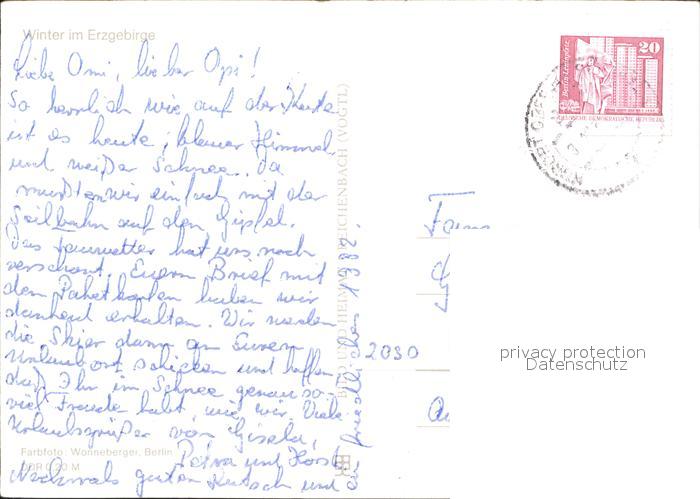 Winter im Erzgebirge
Liebe Omi, lieber Opi!
So herrlich wie auf der Karte
ist es heute, blauer Himmel
und weißer Schnee. Da
mußten wir einfach mit der
Seilbahn auf den Gipfel.
Das Tauwetter hat uns noch
verschont. Euern Brief mit
den Paketkarten haben wir
dankend erhalten. Wir werden
die Skier dann an Euern
Urlaubsort schicken und hoffen,
daß Ihr im Schnee genauso
viel Freude habt, wie wir. Viele
Urlaubsgrüße von Gisela,
Petra und Horst
Nochmals guten Rutsch und
ein friedliches 1982.
Farbfoto: Wonneberger, Berlin
DDR 0,20 M
BILD UND HEIMAT REICHENBACH (VOGTL)
Berlin-Leninplatz
20
DEUTSCHE DEMOKRATISCHE REPUBLIK
2030
privacy protection
Datenschutz